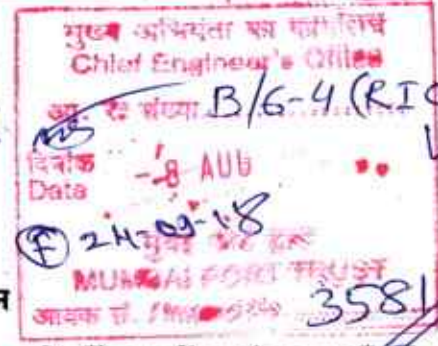 मुख्य अभियंता का कार्यालय
Chief Engineer's Office
संख्या B/6-4 (RIC
दिनांक
Date -8 AUG
F 24-09-18
MUMBAI PORT TRUST
आवक सं. 3581